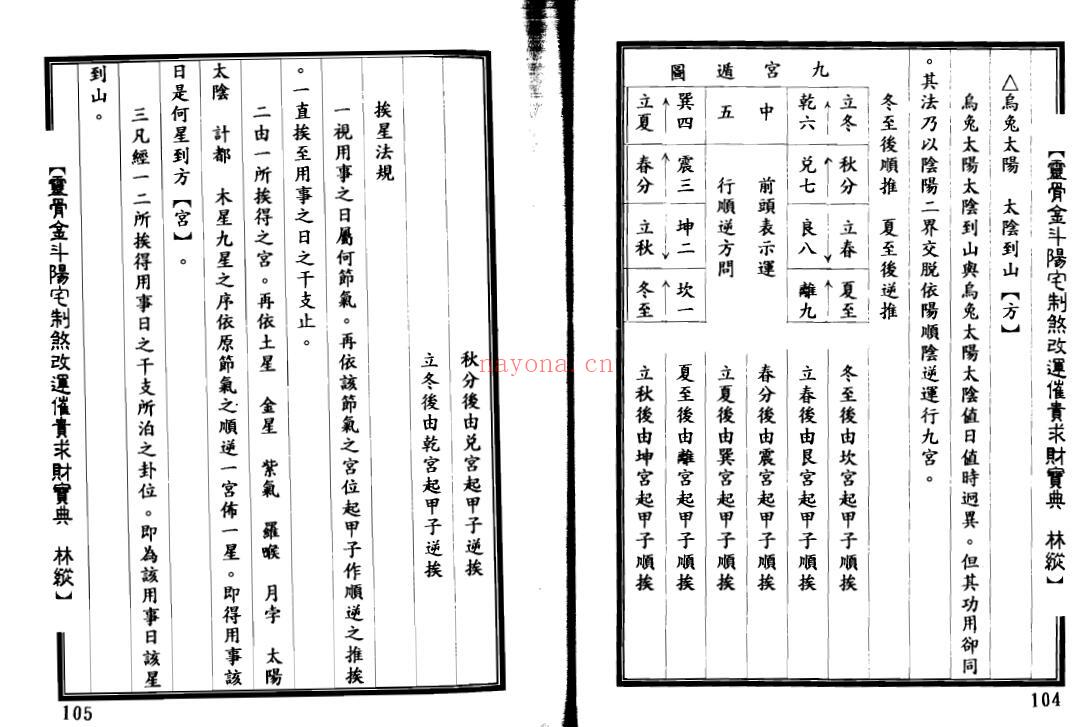 【靈骨金斗陽宅制煞改運催貴求財寶典　林縱】
△烏兔太陽　太陰到山【方】
烏兔太陽太陰到山與烏兔太陽太陰值日值時迥異。但其功用卻同
。其法乃以陰陽二界交脫依陽順陰逆運行九宮。
冬至後順推　夏至後逆推
九宮遁圖
立冬　秋分　立春　夏至
乾六　兌七　艮八　離九
中　前頭表示運
五　行順逆方問
巽四　震三　坤二　坎一
立夏　春分　立秋　冬至
冬至後由坎宮起甲子順挨
立春後由艮宮起甲子順挨
春分後由震宮起甲子順挨
立夏後由巽宮起甲子順挨
夏至後由離宮起甲子順挨
立秋後由坤宮起甲子順挨
104
nayona.cn
秋分後由兌宮起甲子逆挨
立冬後由乾宮起甲子逆挨
挨星法規
一視用事之日屬何節氣。再依該節氣之宮位起甲子作順逆之推挨
。一直挨至用事之日之干支止。
二由一所挨得之宮。再依土星　金星　紫氣　羅睺　月孛　太陽
太陰　計都　木星九星之序依原節氣之順逆一宮佈一星。即得用事該
日是何星到方【宮】。
三凡經一二所挨得用事日之干支所泊之卦位。即為該用事日該星
到山。
【靈骨金斗陽宅制煞改運催貴求財寶典　林縱】
105